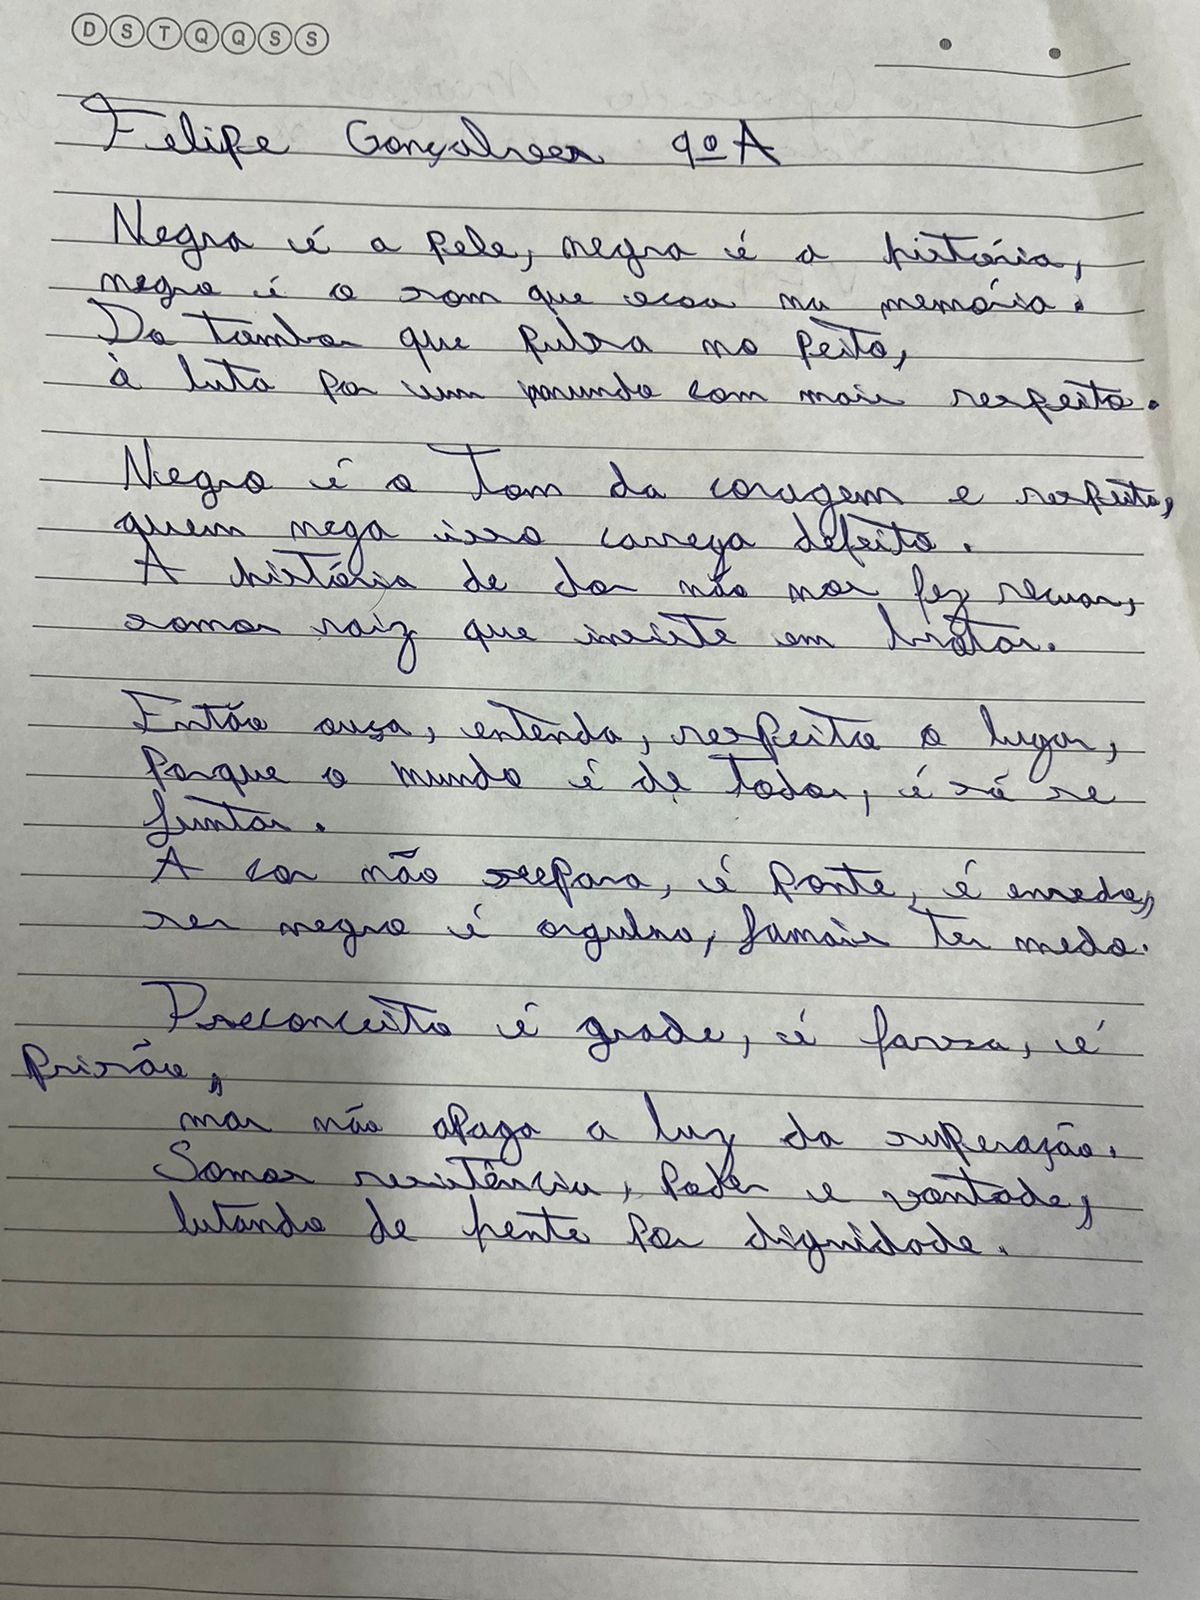 D S T Q Q S S
Felipe Gonçalves 9º A
Negra é a pele, negra é a história,
negro é o som que ecoa na memória.
Do tambor que pulsa no peito,
à luta por um mundo com mais respeito.
Negro é o Tom da coragem e respeito,
quem nega isso carrega defeito.
A história de dor não nos fez recuar,
somos raiz que insiste em brotar.
Então ouça, entenda, respeita o lugar,
Porque o mundo é de todos, é só se
juntar.
A cor não separa, é ponte, é enredo,
ser negro é orgulho, jamais ter medo.
Preconceito é grade, é farsa, é
prisão,
mas não apaga a luz da superação.
Somos resistência, poder e vontade,
lutando de frente por dignidade.